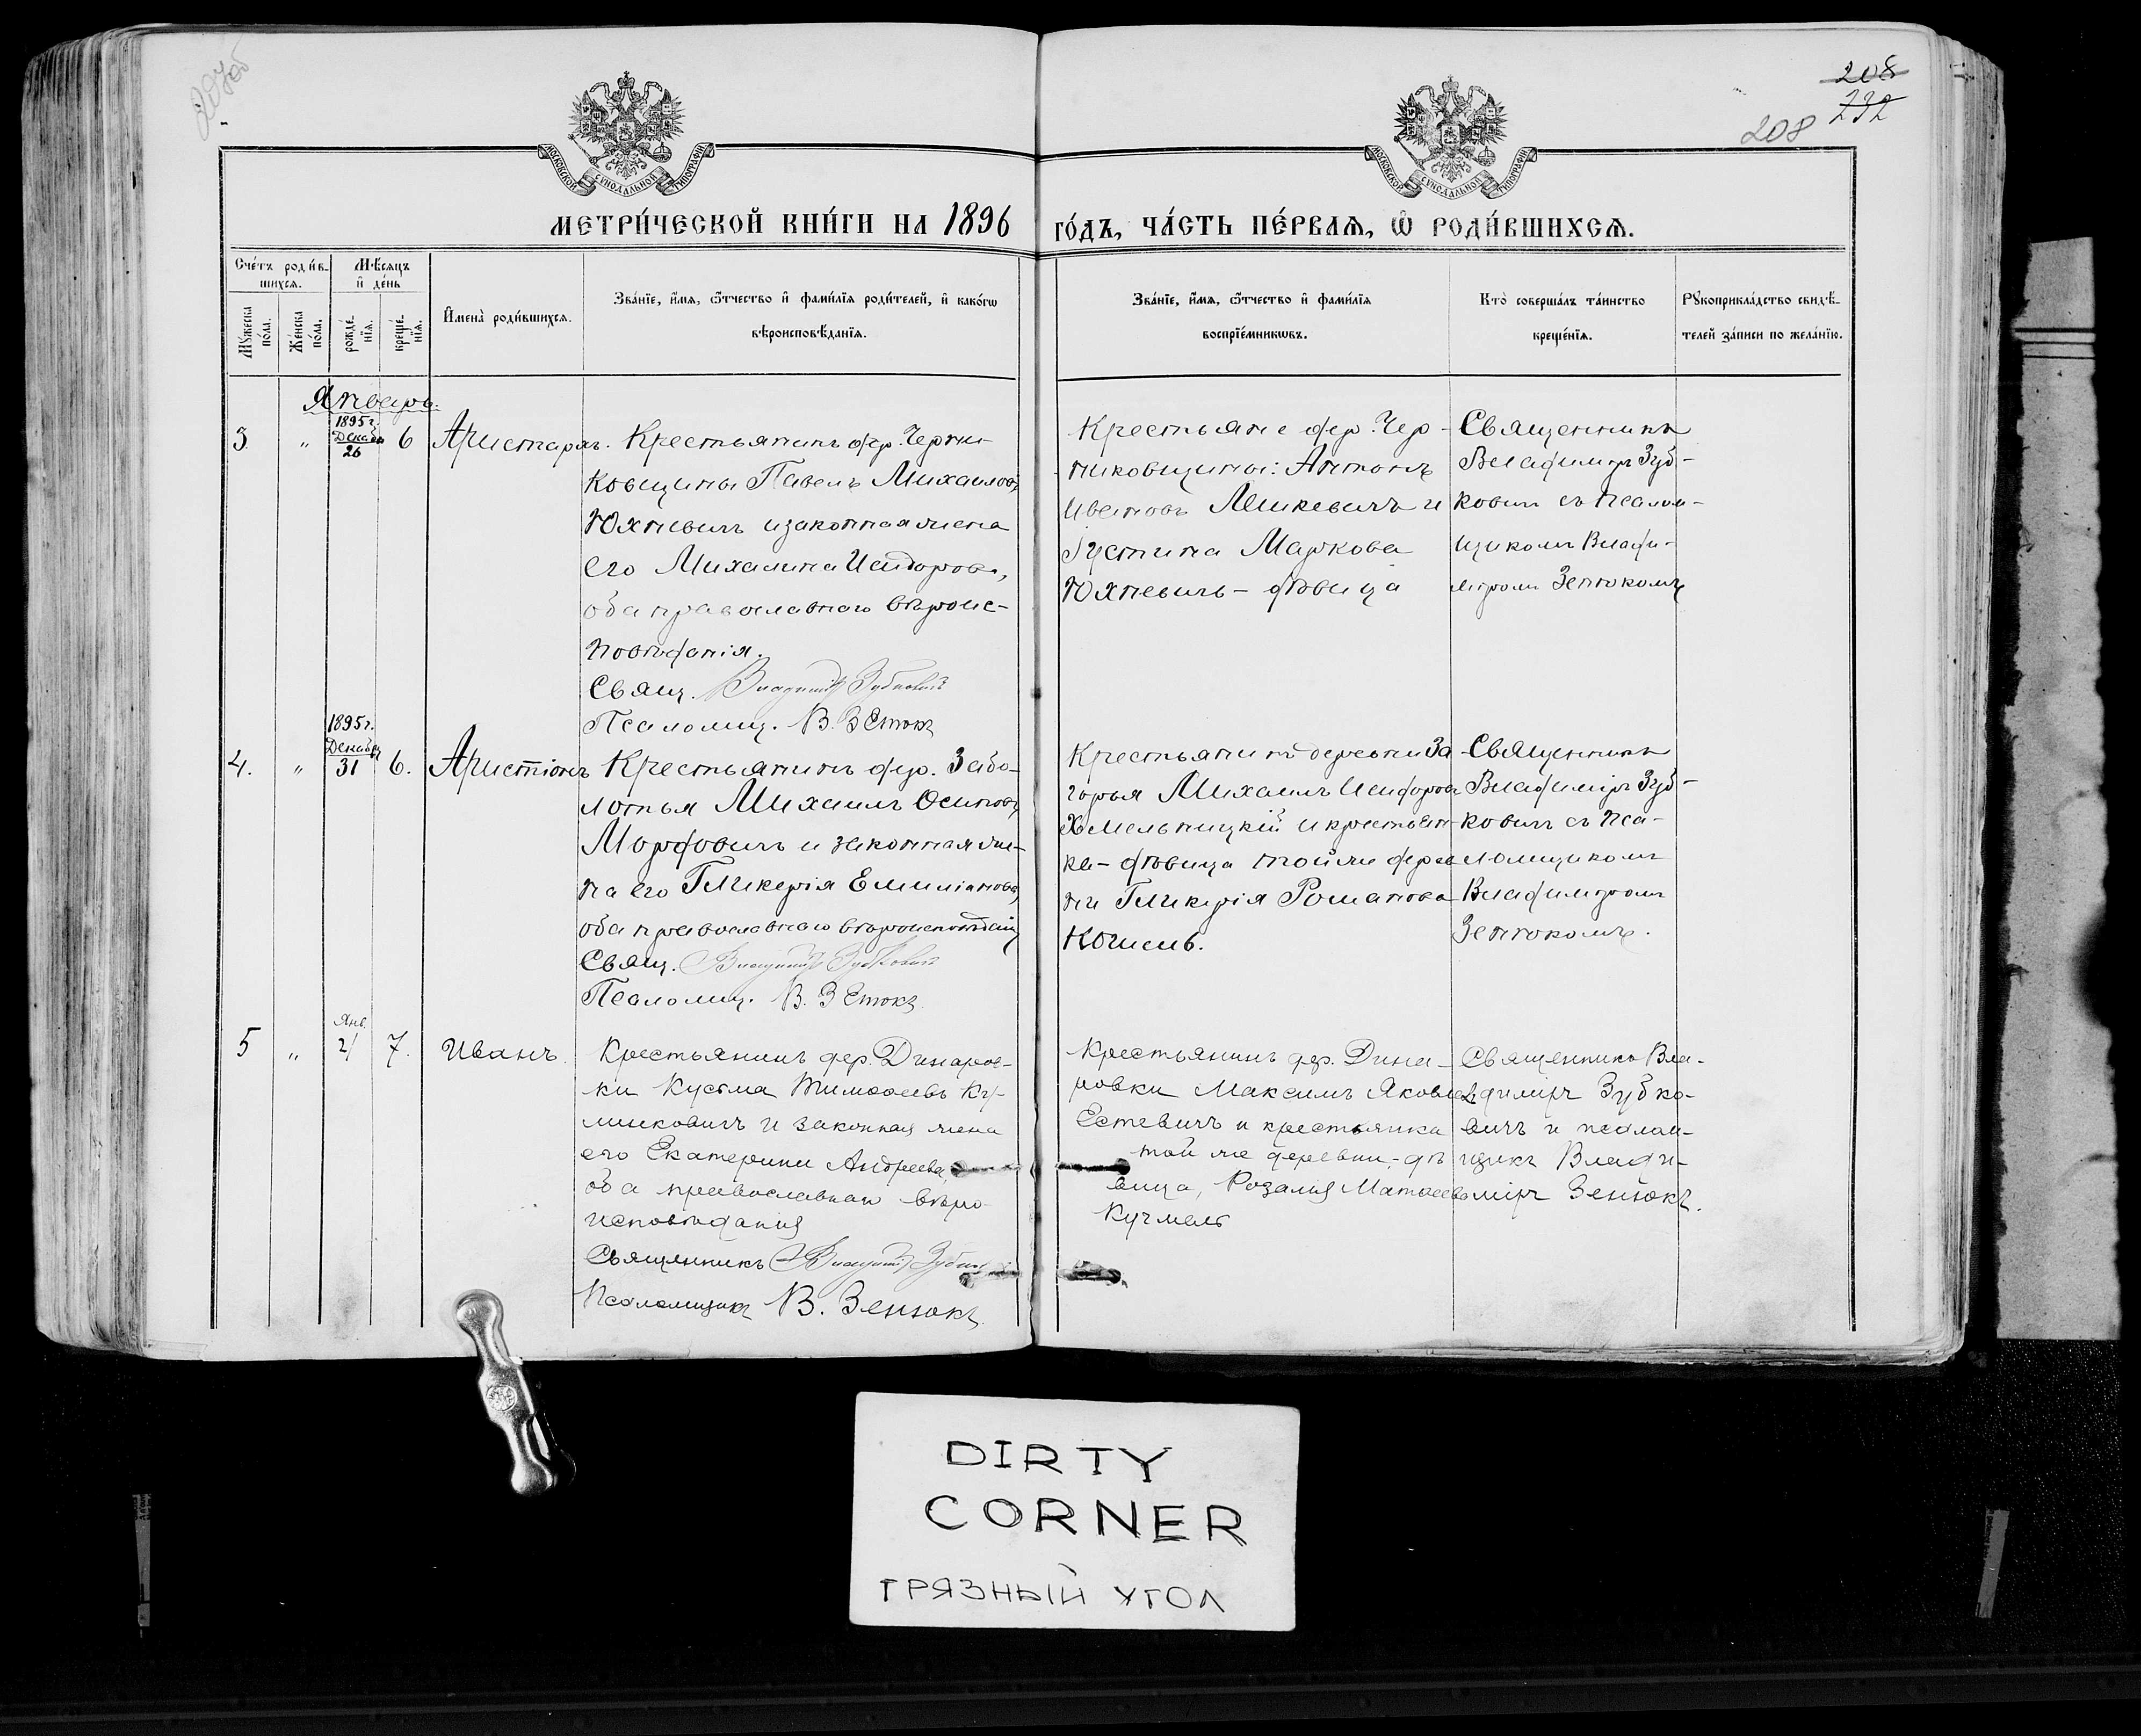 207об
208
232
208
МОСКОВСКОЙ СУНОДАЛЬНОЙ ТИПОГРАФІИ
МОСКОВСКОЙ СУНОДАЛЬНОЙ ТИПОГРАФІИ
МЕТРИ́ЧЕСКОЙ КНИ́ГИ НА 1896
ГО́ДЪ, ЧА́СТЬ ПЕ́РВАѦ, Ѡ҆ РОДИ́ВШИХСѦ.
Сче́тъ роди́в-
шихсѧ.
Мꙋ́жеска по́ла.
Же́нска по́ла.
Мѣ́сѧцъ и҆ де́нь
рожде́-нїѧ.
креще́-нїѧ.
И҆мена̀ роди́вшихсѧ.
Зва́нїе, и҆́мѧ, ѻ҆́тчество и҆ фами́лїѧ роди́телей, и҆ како́гѡ
вѣроисповѣ́данїѧ.
Зва́нїе, и҆́мѧ, ѻ҆́тчество и҆ фами́лїѧ
воспрїе́мникѡвъ.
Кто̀ соверша́лъ та́инство
креще́нїѧ.
Рꙋкоприкла́дство свидѣ́-
телей за́писи по жела́нїю.
Январь.
3. " 1895г. Декабр. 26 6 Аристархъ.
Крестьянинъ дер. Черни-
ковщины Павелъ Михаиловъ
Юхневичъ и законная жена
его Михалина Исидорова,
оба православнаго вѣроис-
повѣданія.
Свящ. Владиміръ Зубковичъ
Псаломщ. В. Зенюкъ
Крестьяне дер. Чер-
никовщины: Антонъ
Ивановъ Мицкевичъ и
Густина Маркова
Юхневичъ - дѣвица
Священникъ
Владиміръ Зуб-
ковичъ съ псалом-
щикомъ Влади-
міромъ Зенюкомъ
4. " 1895г. Декабря 31 6. Аристіонъ
Крестьянинъ дер. Забо-
лотья Михаилъ Осиповъ
Мордовичъ и законная же-
на его Гликерія Емиліанова,
оба православнаго вѣроисповѣданія
Свящ. Владиміръ Зубковичъ
Псаломщ. В. Зенюкъ
Крестьянинъ деревни За-
горья Михаилъ Исидоровъ
Хмельницкій и крестьян-
ка - дѣвица той же дерев
ни Гликерія Романова
Священникъ
Владиміръ Зуб-
ковичъ съ пса-
ломщикомъ
Владиміромъ
Зенюкомъ.
5 " Янв. 2 7. Иванъ.
Крестьянинъ дер. Динаров-
ки Кузьма Тимоѳеевъ
и законная жена
его Екатерина Андреева,
оба православнаго вѣро-
исповѣданія
Священникъ Владиміръ Зубковичъ
Псаломщикъ В. Зенюкъ.
Крестьянинъ дер. Дина-
ровки Максимъ Яковлевъ
Естевичъ и крестьянка
той же деревни, - дѣ
вица, Розалія Матѳеева
Кучмель
Священникъ Вла-
диміръ Зубко-
вичъ и псалом-
щикъ Влади-
міръ Зенюкъ.
DIRTY
CORNER
ГРЯЗНЫЙ УГОЛ